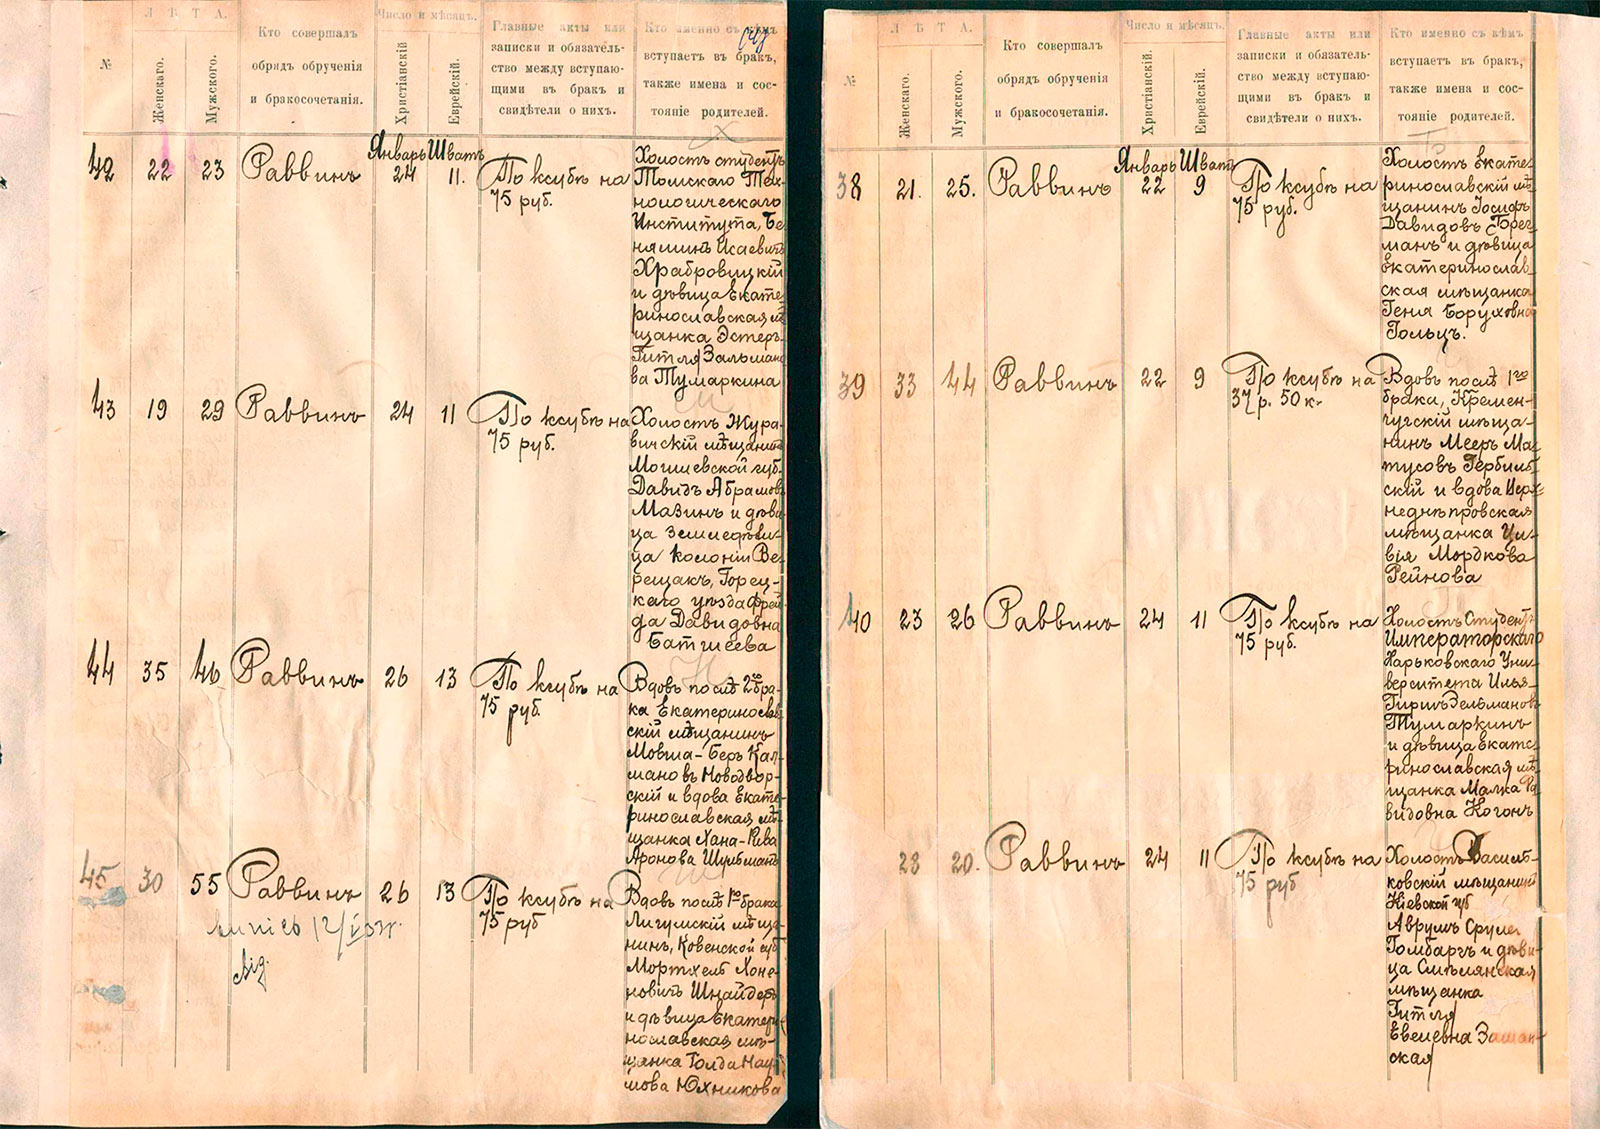 №
Л Ѣ Т А.
Женскаго.
Мужскаго.
Кто совершалъ
обрядъ обрученія
и бракосочетанія.
Число и мѣсяцъ.
Христіанскій
Еврейскій.
Главные акты или
записки и обязатель-
ство между вступаю-
щими въ бракъ и
свидѣтели о нихъ.
Кто именно съ кѣмъ
вступаетъ въ бракъ,
также имена и сос-
тояніе родителей.
42
22
23
Раввинъ
Январь
24
Шватъ
11.
По ксубѣ на
75 руб.
Холостъ студентъ
Томскаго Тех-
нологическаго
Института, Бе-
няминъ Исаевичъ
Храбровицкій
и дѣвица Екате-
ринославская мѣ
щанка Эстеръ-
Гитля Зальмано
ва Тумаркина
43
19
29
Раввинъ
24
11
По ксубѣ на
75 руб.
Холостъ Жура-
вичскій мѣщанинъ
Могилевской губ.
Давидъ Абрамов
Мазинъ и дѣви
ца Земледѣли-
ца колоніи Ве-
рещакъ, Горец-
каго уѣзда Фрей-
да Давидовна
Батшеева
44
35
46
Раввинъ
26
13
По ксубѣ на
75 руб.
Вдовъ послѣ 2го бра-
ка Екатеринослав
скій мѣщанинъ
Мовша-Беръ Кал-
мановъ Новодвор-
скій и вдова Екате-
ринославская мѣ-
щанка Хана-Рива
Аронова Шульманъ
45
30
55
Раввинъ
26
13
По ксубѣ на
75 руб
Вдовъ послѣ 1го брака
Лигумскій мѣща-
нинъ, Ковенской губ
Мортхель Хоне-
новичъ Шнайдеръ
и дѣвица Екатери-
нославская мѣ-
щанка Голда Нау-
мова Юхникова
№
Л Ѣ Т А.
Женскаго.
Мужского.
Кто совершалъ
обрядъ обрученія
и бракосочетанія.
Число и мѣсяцъ.
Христіанскій.
Еврейскій.
Главные акты или
записки и обязатель-
ство между вступаю-
щими въ бракъ и
свидѣтели о нихъ.
Кто именно съ кѣмъ
вступаетъ въ бракъ,
также имена и сос-
тояніе родителей.
38
21.
25.
Раввинъ
Январь
22
Шватъ
9
По ксубѣ на
75 руб.
Холостъ Екате-
ринославскій мѣ-
щанинъ Іосифъ
Давидовъ Брег-
манъ и дѣвица
Екатеринослав-
ская мѣщанка
Геня Боруховна
Гольцъ.
39
33
44
Раввинъ
22
9
По ксубѣ на
37 р. 50 к.
Вдовъ послѣ 1го
брака, Кремен-
чугскій мѣща-
нинъ Мееръ Ма-
тусовъ Гербиль-
скій и вдова Верх-
неднѣпровская
мѣщанка Ци-
вія Мордкова
Рейнова
40
23
26
Раввинъ
24
11
По ксубѣ на
75 руб.
Холостъ Студентъ
Императорскаго
Харьковскаго Уни-
верситета Илья-
Гиршъ Зельмановъ
Тумаркинъ
и дѣвица Екате-
ринославская мѣ-
щанка Малка Да
видовна Когонъ
23
20.
Раввинъ
24
11
По ксубѣ на
75 руб
Холостъ Василь-
ковскій мѣщанинъ
Кіевской губ
Аврумъ Срулев
Гомбаргъ и дѣви-
ца Смѣлянская
мѣщанка
Гитля
Евелевна Заслав-
ская